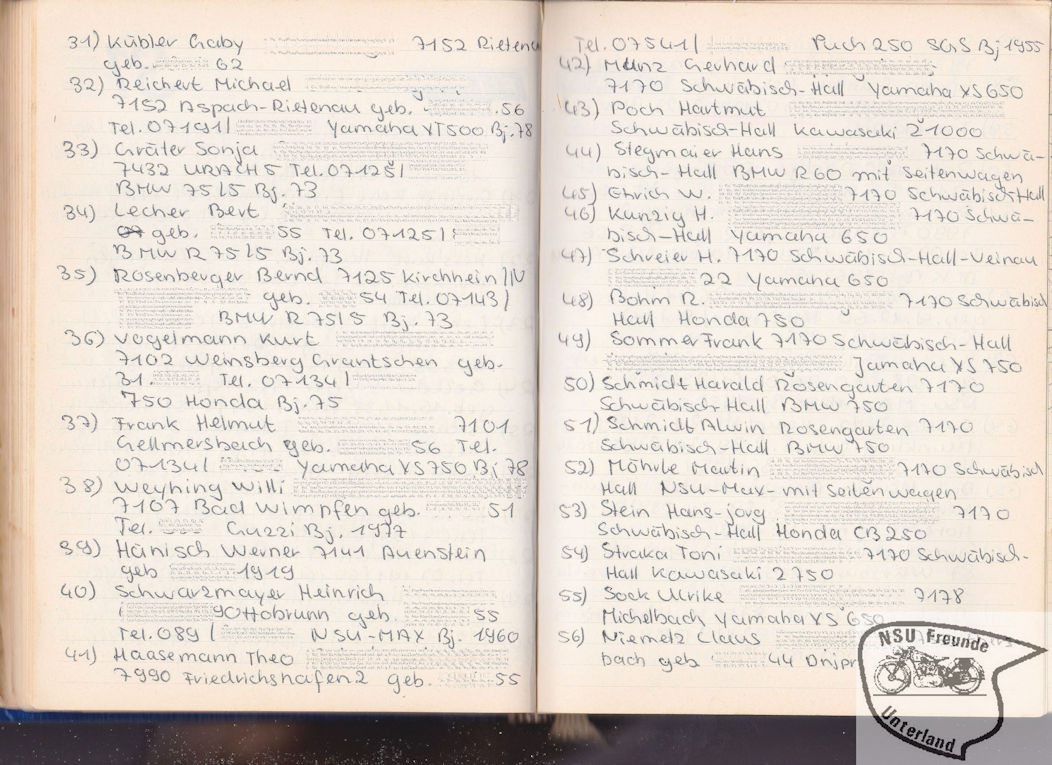 31) Kübler Gaby 7152 Rietenau
geb. 62
32) Reichert Michael
7152 Aspach-Rietenau geb. .56
Tel. 07191/ Yamaha XT500 Bj.78
33) Gräter Sonja
7432 URACH 5 Tel. 07125/
BMW 75/5 Bj. 73
34) Lecher Bert
geb. 55 Tel. 07125/
BMW R 75/5 Bj. 73
35) Rosenberger Bernd 7125 Kirchhein/N
geb. 54 Tel. 07143/
BMW R 75/5 Bj. 73
36) Vogelmann Kurt
7102 Weinsberg Grantschen geb.
31. Tel. 07134/
750 Honda Bj. 75
37) Frank Helmut 7101
Gellmersbach geb. 56 Tel.
07134/ Yamaha XS750 Bj 78
38) Weyhing Willi
7107 Bad Wimpfen geb. 51
Tel. Guzzi Bj. 1977
39) Hänisch Werner 7141 Auenstein
geb 1919
40) Schwarzmayer Heinrich
( 90Hobrunn geb. 55
Tel. 089 / NSU-MAX Bj. 1960
41) Haasemann Theo
7990 Friedrichshafen 2 geb. .55
Tel. 07541/ Puch 250 SGS Bj 1955
42) Munz Gerhard
7170 Schwäbisch-Hall Yamaha XS650
43) Poch Hartmut
Schwäbisch-Hall Kawasaki Z1000
44) Stegmaier Hans 7170 Schwä-
bisch-Hall BMW R60 mit Seitenwagen
45) Ehrich W. 7170 Schwäbisch Hall
46) Kunzig H. 7170 Schwä-
bisch-Hall Yamaha 650
47) Schreier H. 7170 Schwäbisch-Hall-Veinau
22 Yamaha 650
48) Bohm R. 7170 Schwäbisch
Hall Honda 750
49) Sommer Frank 7170 Schwäbisch-Hall
Jamaha XS 750
50) Schmidt Harald Rosengarten 7170
Schwäbisch-Hall BMW 750
51) Schmidt Alwin Rosengarten 7170
Schwäbisch-Hall BMW 750
52) Mährle Martin 7170 Schwäbisch
Hall NSU-Max-mit Seitenwagen
53) Stein Hans-jörg 7170
Schwäbisch-Hall Honda CB 250
54) Straka Toni 7170 Schwäbisch-
Hall Kawasaki Z 750
55) Sock Ulrike 7178
Michelbach Yamaha XS 650
56) Niemelz Claus
bach geb 44 Dnjpr
NSU Freunde
Unterland